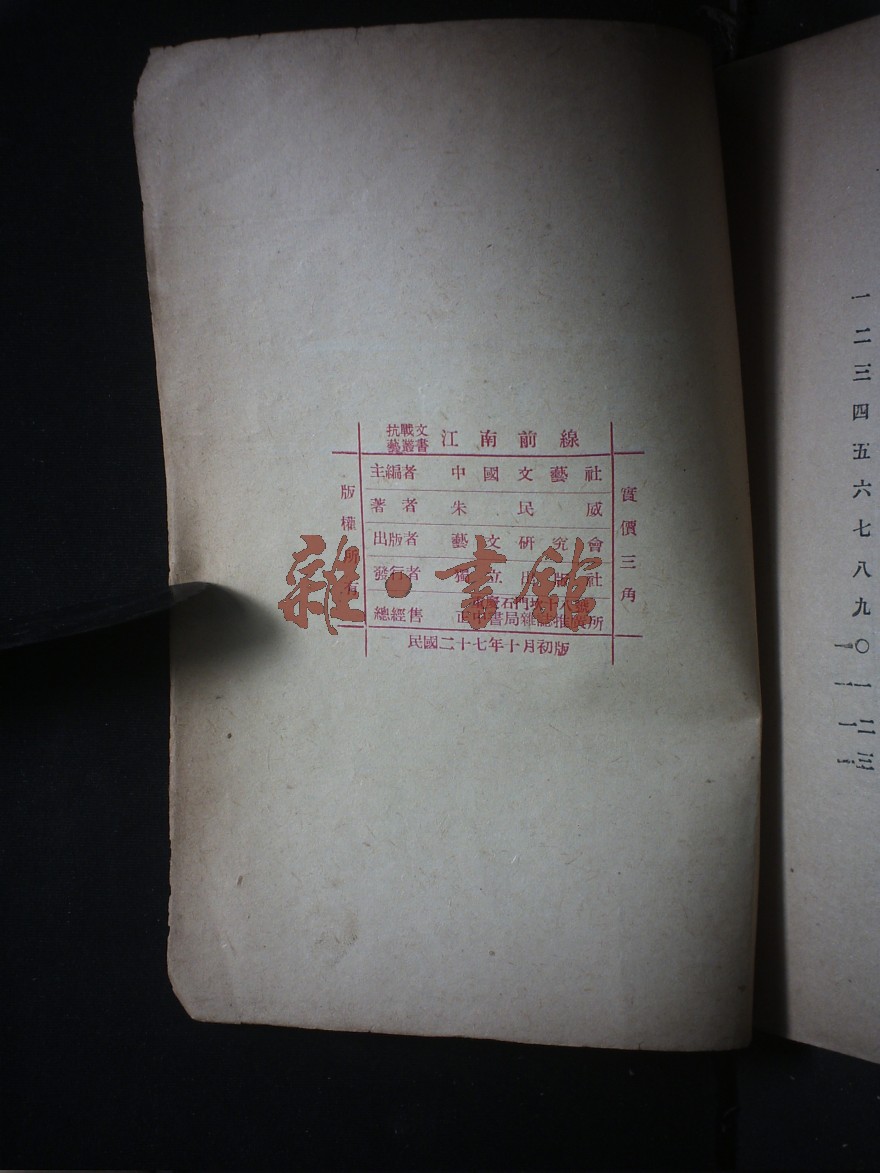 抗戰文
藝叢書
江南前線
主編者 中國文藝社
著者 朱民威
出版者 藝文研究會
發行者 獨立出版社
重慶石門坎十八號
總經售 正中書局雜誌推廣所
民國二十七年十月初版
版權所有
實價三角
雜·書館
一
二
三
四
五
六
七
八
九
一〇
一一
一二
一三